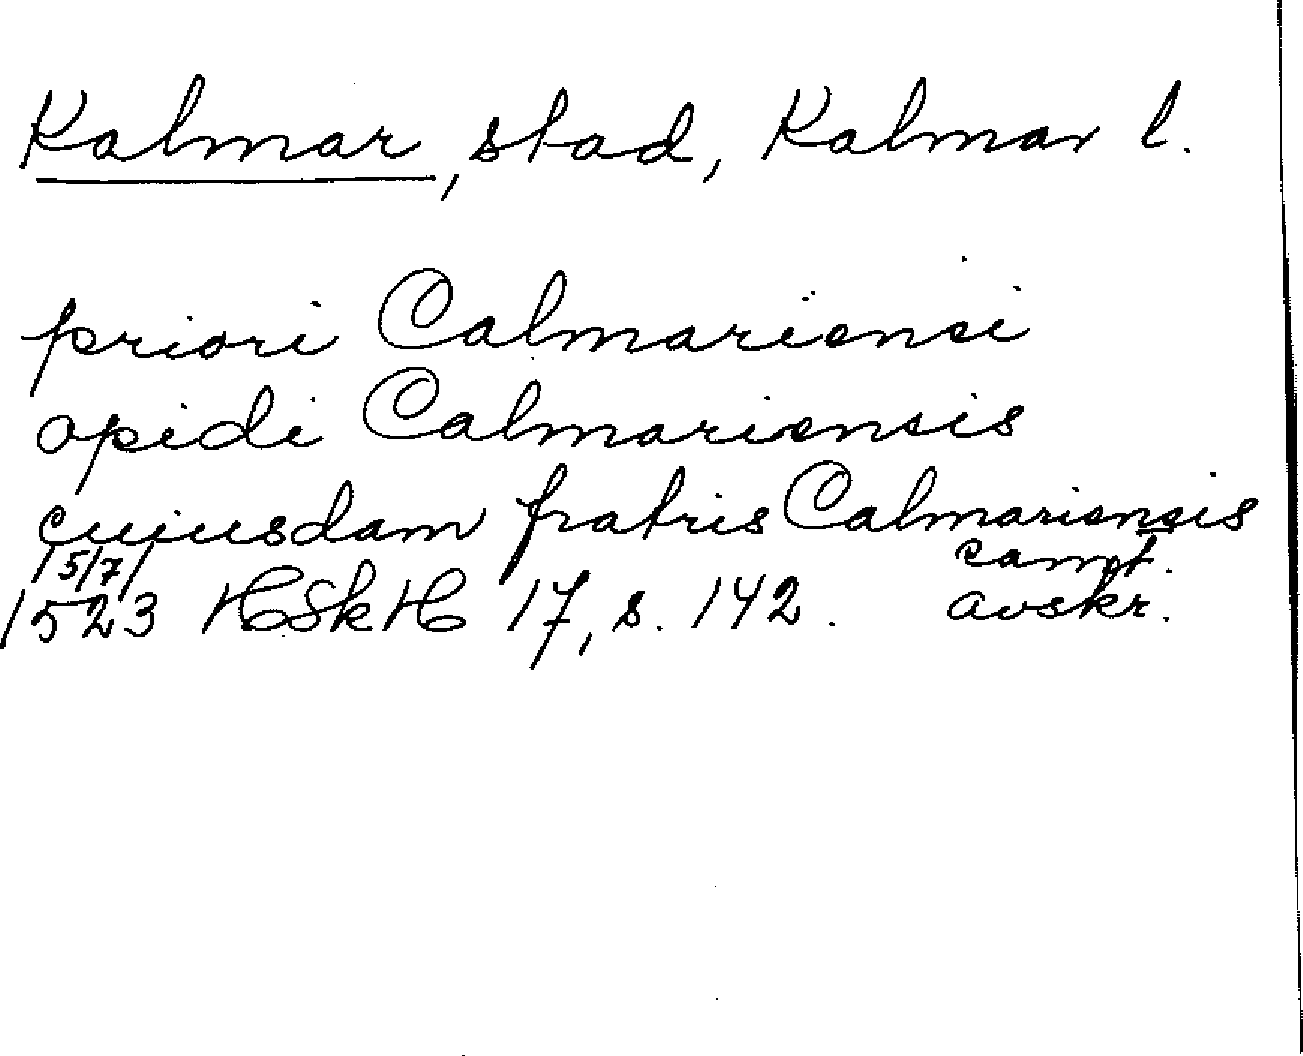 Kalmar, stad, Kalmar l.
priori Calmariensi
opidi Calmariensis
cuiusdam fratris Calmariensis
/5/7/ samt.
1523 HSkH 17, s. 142. avskr.